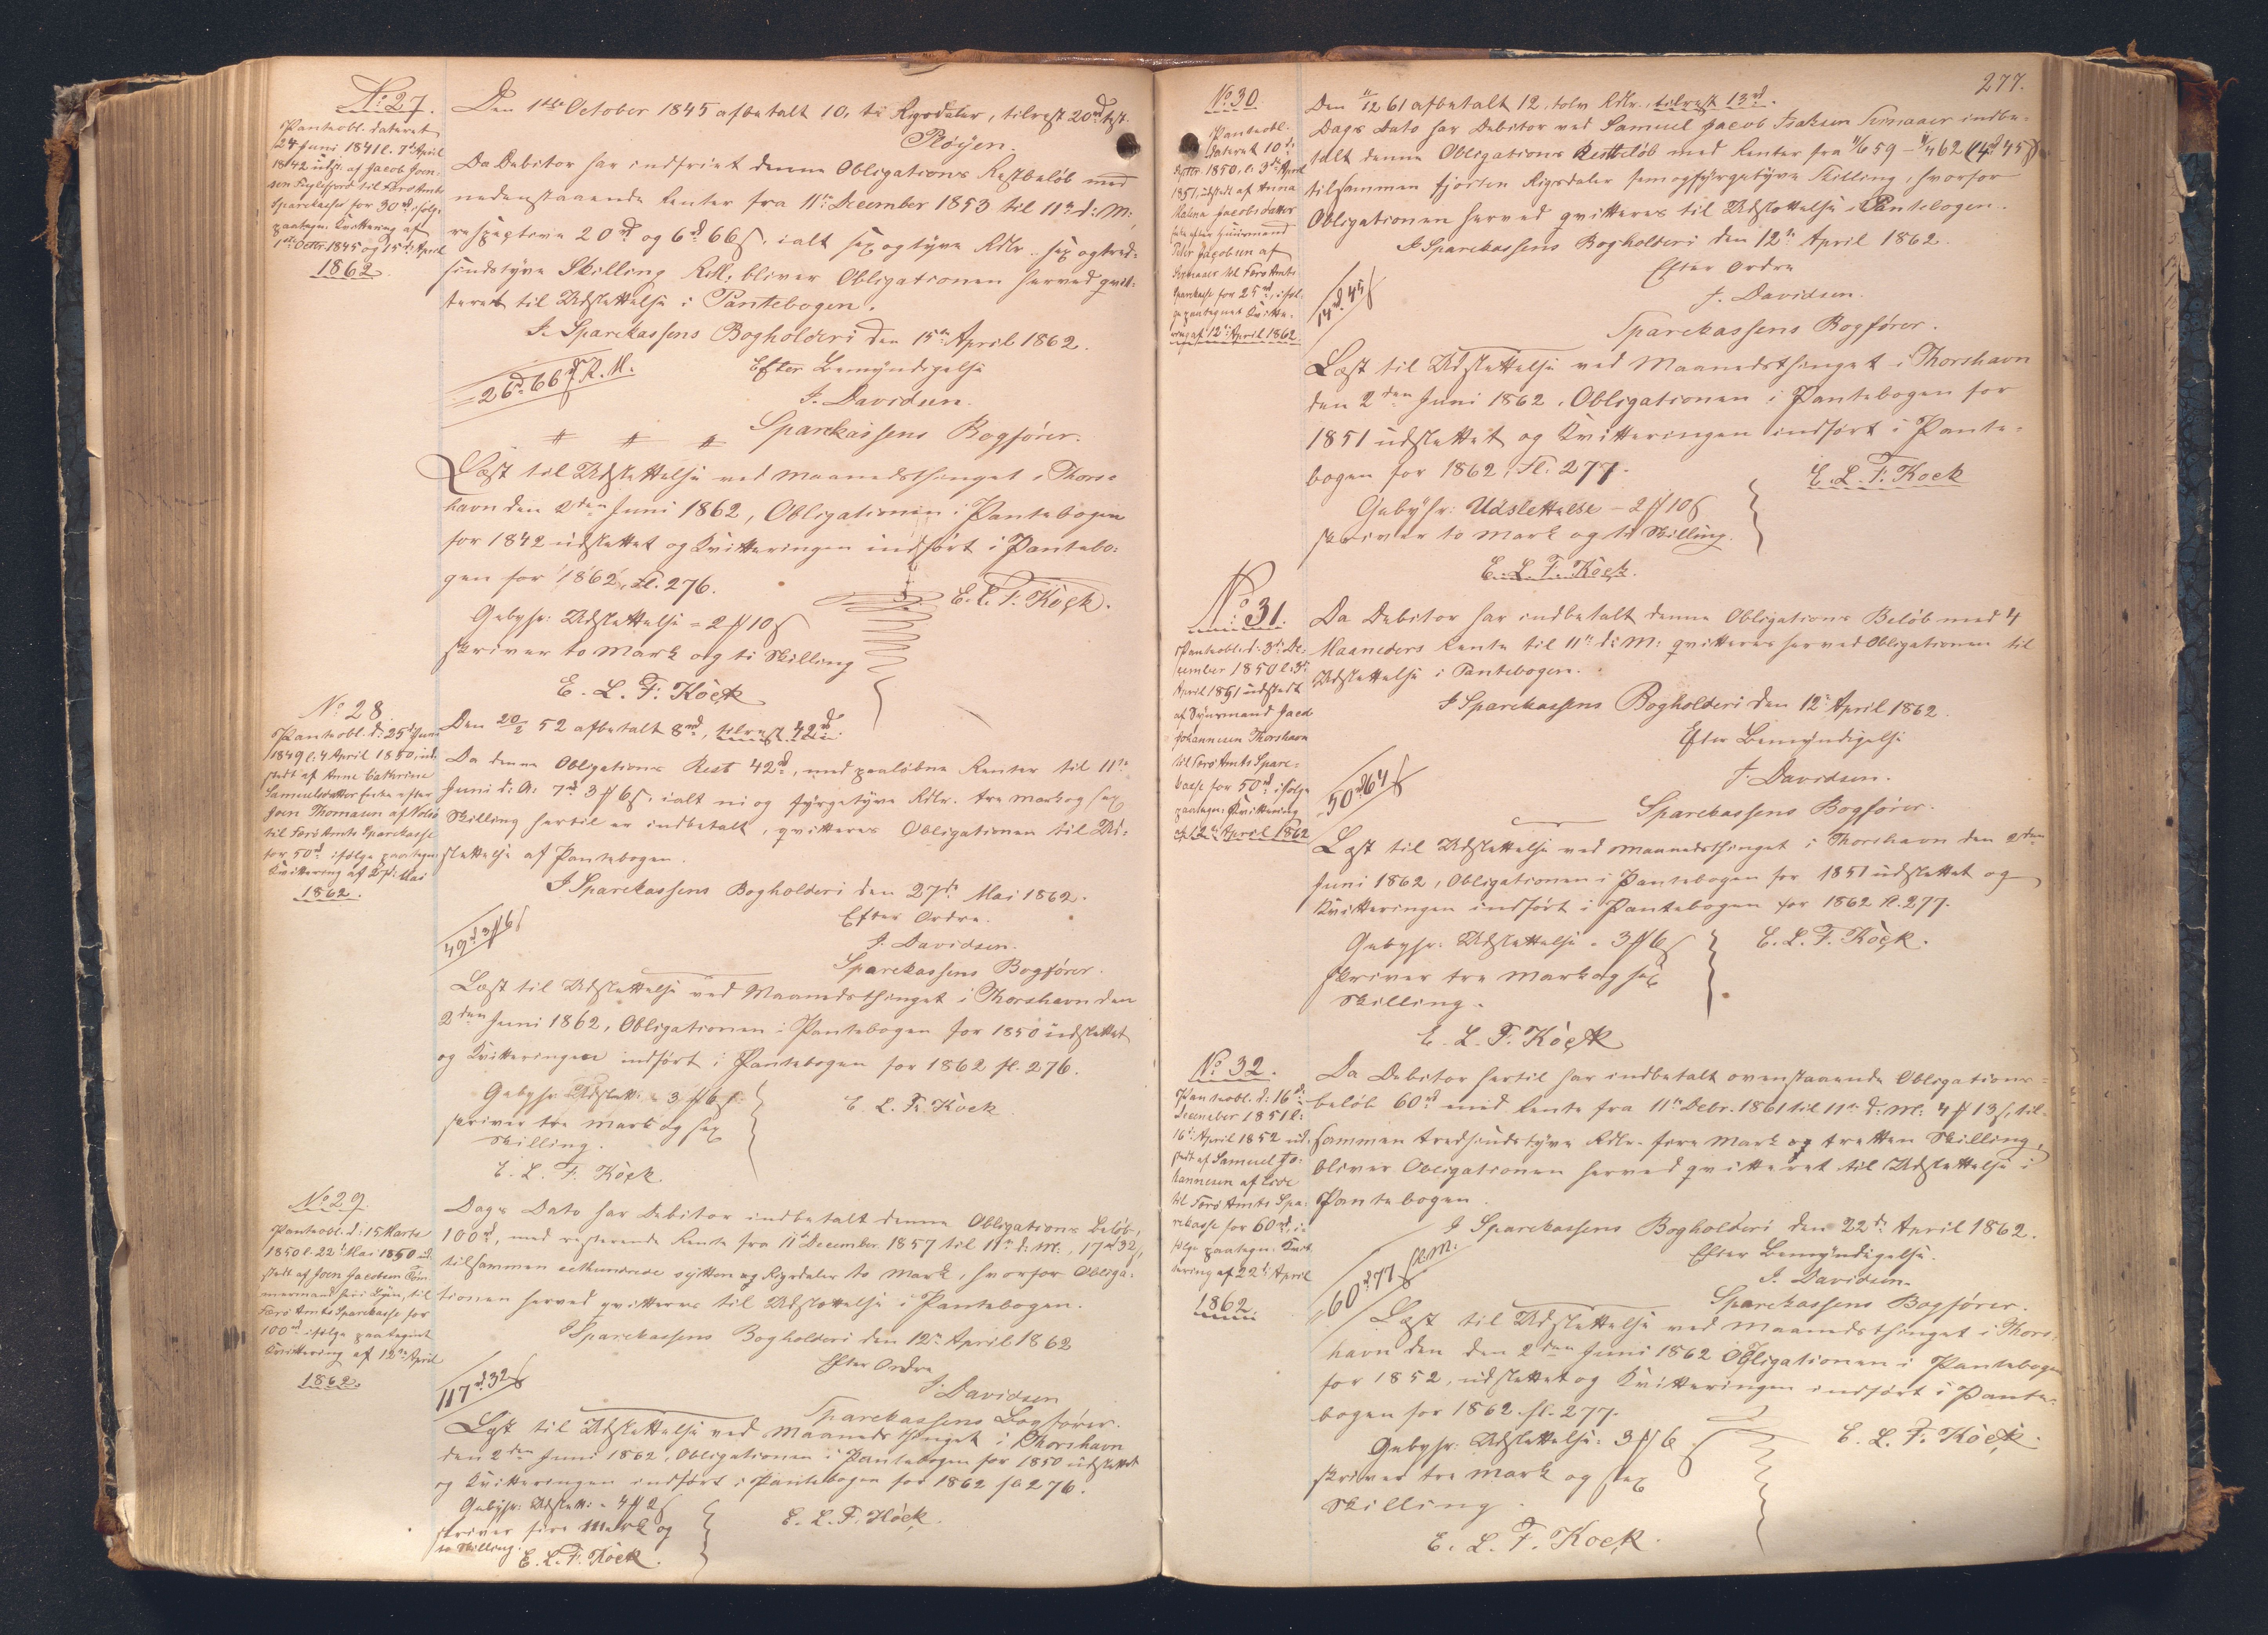 No 27.
Panteobl. dateret
24 Juni 1841 l. 7de April
1842 udst. af Jacob Joen-
sen Fuglefjord til Færø Amts
Sparekasse for 30 rd ifølge
paategn. Kvittering af
1ste Octbr. 1845 og 15 d: April
1862.
Den 1ste October 1845 afbetalt 10, ti Rigsdaler, tilrest 20 rd
Pløyen.
Da Debitor har indfriet denne Obligations Restbeløb med
nedenstaaende Renter fra 11te December 1853 til 11te d: M:
respective 20 rd og 6 rd 66 s. ialt sex og tyve Rdlr. sex og tred-
sindstyve Skilling R.M. bliver Obligationen herved qvit-
teret til Udslettelse i Pantebogen.
I Sparekassens Bogholderi den 15de April 1862.
26 rd 66 s R.M.
Efter Bemyndigelse
J. Davidsen.
Sparekassens Bogfører.
Læst til Udslettelse ved Maanedsthinget i Thors-
havn den 2den Juni 1862, Obligationen i Pantebogen
for 1842 udslettet og Kvitteringen indført i Pantebo-
gen for 1862, fl. 276.
E. L. F. Köck.
Gebyhr: Udslettelse = 2 # 10 s
skriver to Mark og ti Skilling
E. L. F. Köck
No 28.
Panteobl. d: 25 d: Juni
1849 l. 4 April 1850, ud-
stedt af Anne Cathrine
Samuelsdatter Enke efter
Joen Thomasen af Nolsø
til Færø Amts Sparekasse
for 50 rd ifølge paategn.
Kvittering af 27 d: Mai
1862.
Den 20/2 52 afbetalt 8 rd, tilrest 42 rd.
Da denne Obligations Rest 42 rd, med paaløbne Renter til 11te
Juni d: A: 7 rd 3 # 6 s. ialt ni og fyrgetyve Rdlr. tre Mark og sex
Skilling hertil er indbetalt, qvitteres Obligationen til Ud-
slettelse af Pantebogen.
I Sparekassens Bogholderi den 27de Mai 1862.
49 rd 3 # 6 s
Efter Ordre.
J. Davidsen.
Sparekassens Bogfører.
Læst til Udslettelse ved Maanedsthinget i Thorshavn den
2den Juni 1862, Obligationen i Pantebogen for 1850 udslettet
og Kvitteringen indført i Pantebogen for 1862 fl. 276.
Gebyhr: Udslett: = 3 # 6 s
skriver tre Mark og sex
Skilling.
E. L. F. Köck
E. L. F. Köck
No 29.
Panteobl. d: 15 Marts
1850 l. 22 d Mai 1850 ud-
stedt af Joen Jacobsen Töm-
mermand til
Færø Amts Sparekasse for
100 rd ifølge paategnet
Kvittering af 12te April
1862.
Dags Dato har Debitor indbetalt denne Obligations Beløb,
100 rd, med resterende Rente fra 11te December 1857 til 11te d: M:, 17 rd 32 s,
tilsammen eethundrede sytten og Rigsdaler to Mark, hvorfor Obliga-
tionen herved qvitteres til Udslettelse i Pantebogen.
I Sparekassens Bogholderi den 12te April 1862
117 rd 32 s
Efter Ordre
J. Davidsen
Sparekassens Bogfører.
Læst til Udslettelse ved Maanedsthinget i Thorshavn
den 2den Juni 1862, Obligationen i Pantebogen for 1850 udslettet
og Kvitteringen indført i Pantebogen for 1862 fl 276.
Gebyhr: Udslett: = 4 # 2 s
skriver fire Mark og
to Skilling.
E. L. F. Köck.
E. L. F. Köck.
277.
No 30.
Panteobl.
dateret 10de
1850, l. 3de April
1851, udstedt af Anna
Malene Jacobsdatter
Enke efter Huusmand
Peder Jacobsen af
til Færø Amts
Sparekasse for 25 rd, iføl-
ge paategnet Kvitte-
ring af 12te April 1862.
Den 11/12 61 afbetalt 12, tolv Rdlr., tilrest 13 rd.
Dags Dato har Debitor ved Samuel Jacob Isaksen indbe-
talt denne Obligations Restbeløb med Renter fra 11/6 59 - 11/4 62 (1 rd 45 s)
tilsammen fjorten Rigsdaler femogfyrgetyve Skilling, hvorfor
Obligationen herved qvitteres til Udslettelse i Pantebogen.
I Sparekassens Bogholderi den 12te April 1862.
14 rd 45 s
Efter Ordre
J. Davidsen.
Sparekassens Bogfører.
Læst til Udslettelse ved Maanedsthinget i Thorshavn
den 2den Juni 1862, Obligationen i Pantebogen for
1851 udslettet og Kvitteringen indført i Pante-
bogen for 1862, fl. 277.
E. L. F. Köck
Gebyhr: Udslettelse - 2 # 10 s
skriver to Mark og ti Skilling.
E. L. F. Köck.
No 31.
Panteobl. d: 3de De-
cember 1850 l. 3de
April 1851 udstedt
af Synsmand Jacob
Johannesen Thorshavn
til Færø Amts Spare-
kasse for 50 rd ifølge
paategn. Kvittering
af 12te April 1862
Da Debitor har indbetalt denne Obligations Beløb med 4
Maaneders Rente til 11te d: M: qvitteres herved Obligationen til
Udslettelse i Pantebogen.
I Sparekassens Bogholderi den 12te April 1862.
Efter Bemyndigelse
50 rd 64 s
J. Davidsen.
Sparekassens Bogfører.
Læst til Udslettelse ved Maanedsthinget i Thorshavn den 2den
Juni 1862, Obligationen i Pantebogen for 1851 udslettet og
Kvitteringen indført i Pantebogen for 1862 fl. 277.
Gebyhr: Udslettelse = 3 # 6 s
skriver tre Mark og sex
Skilling.
E. L. F. Köck.
E. L. F. Köck
No 32.
Panteobl. d: 16de
December 1851 l:
16de April 1852 ud-
stedt af Samuel Jo-
hannesen af Eide
til Færø Amts Spa-
rekasse for 60 rd, i-
følge paategn. Kvit-
tering af 22de April
1862.
Da Debitor hertil har indbetalt ovenstaaende Obligations-
beløb 60 rd med Rente fra 11te Debr. 1861 til 11te d: M: 4 # 13 s, til-
sammen tredsindstyve Rdlr. fire Mark og tretten Skilling,
bliver Obligationen herved qvitteret til Udslettelse i
Pantebogen.
I Sparekassens Bogholderi den 22de April 1862.
60 rd 77 s R.M.
Efter Bemyndigelse.
J. Davidsen.
Sparekassens Bogfører.
Læst til Udslettelse ved Maanedsthinget i Thors-
havn den den 2den Juni 1862 Obligationen i Pantebogen
for 1852, udslettet og Kvitteringen indført i Pante-
bogen for 1862 fl. 277.
Gebyhr: Udslettelse: 3 # 6 s
skriver tre Mark og sex
Skilling.
E. L. F. Köck.
E. L. F. Köck.